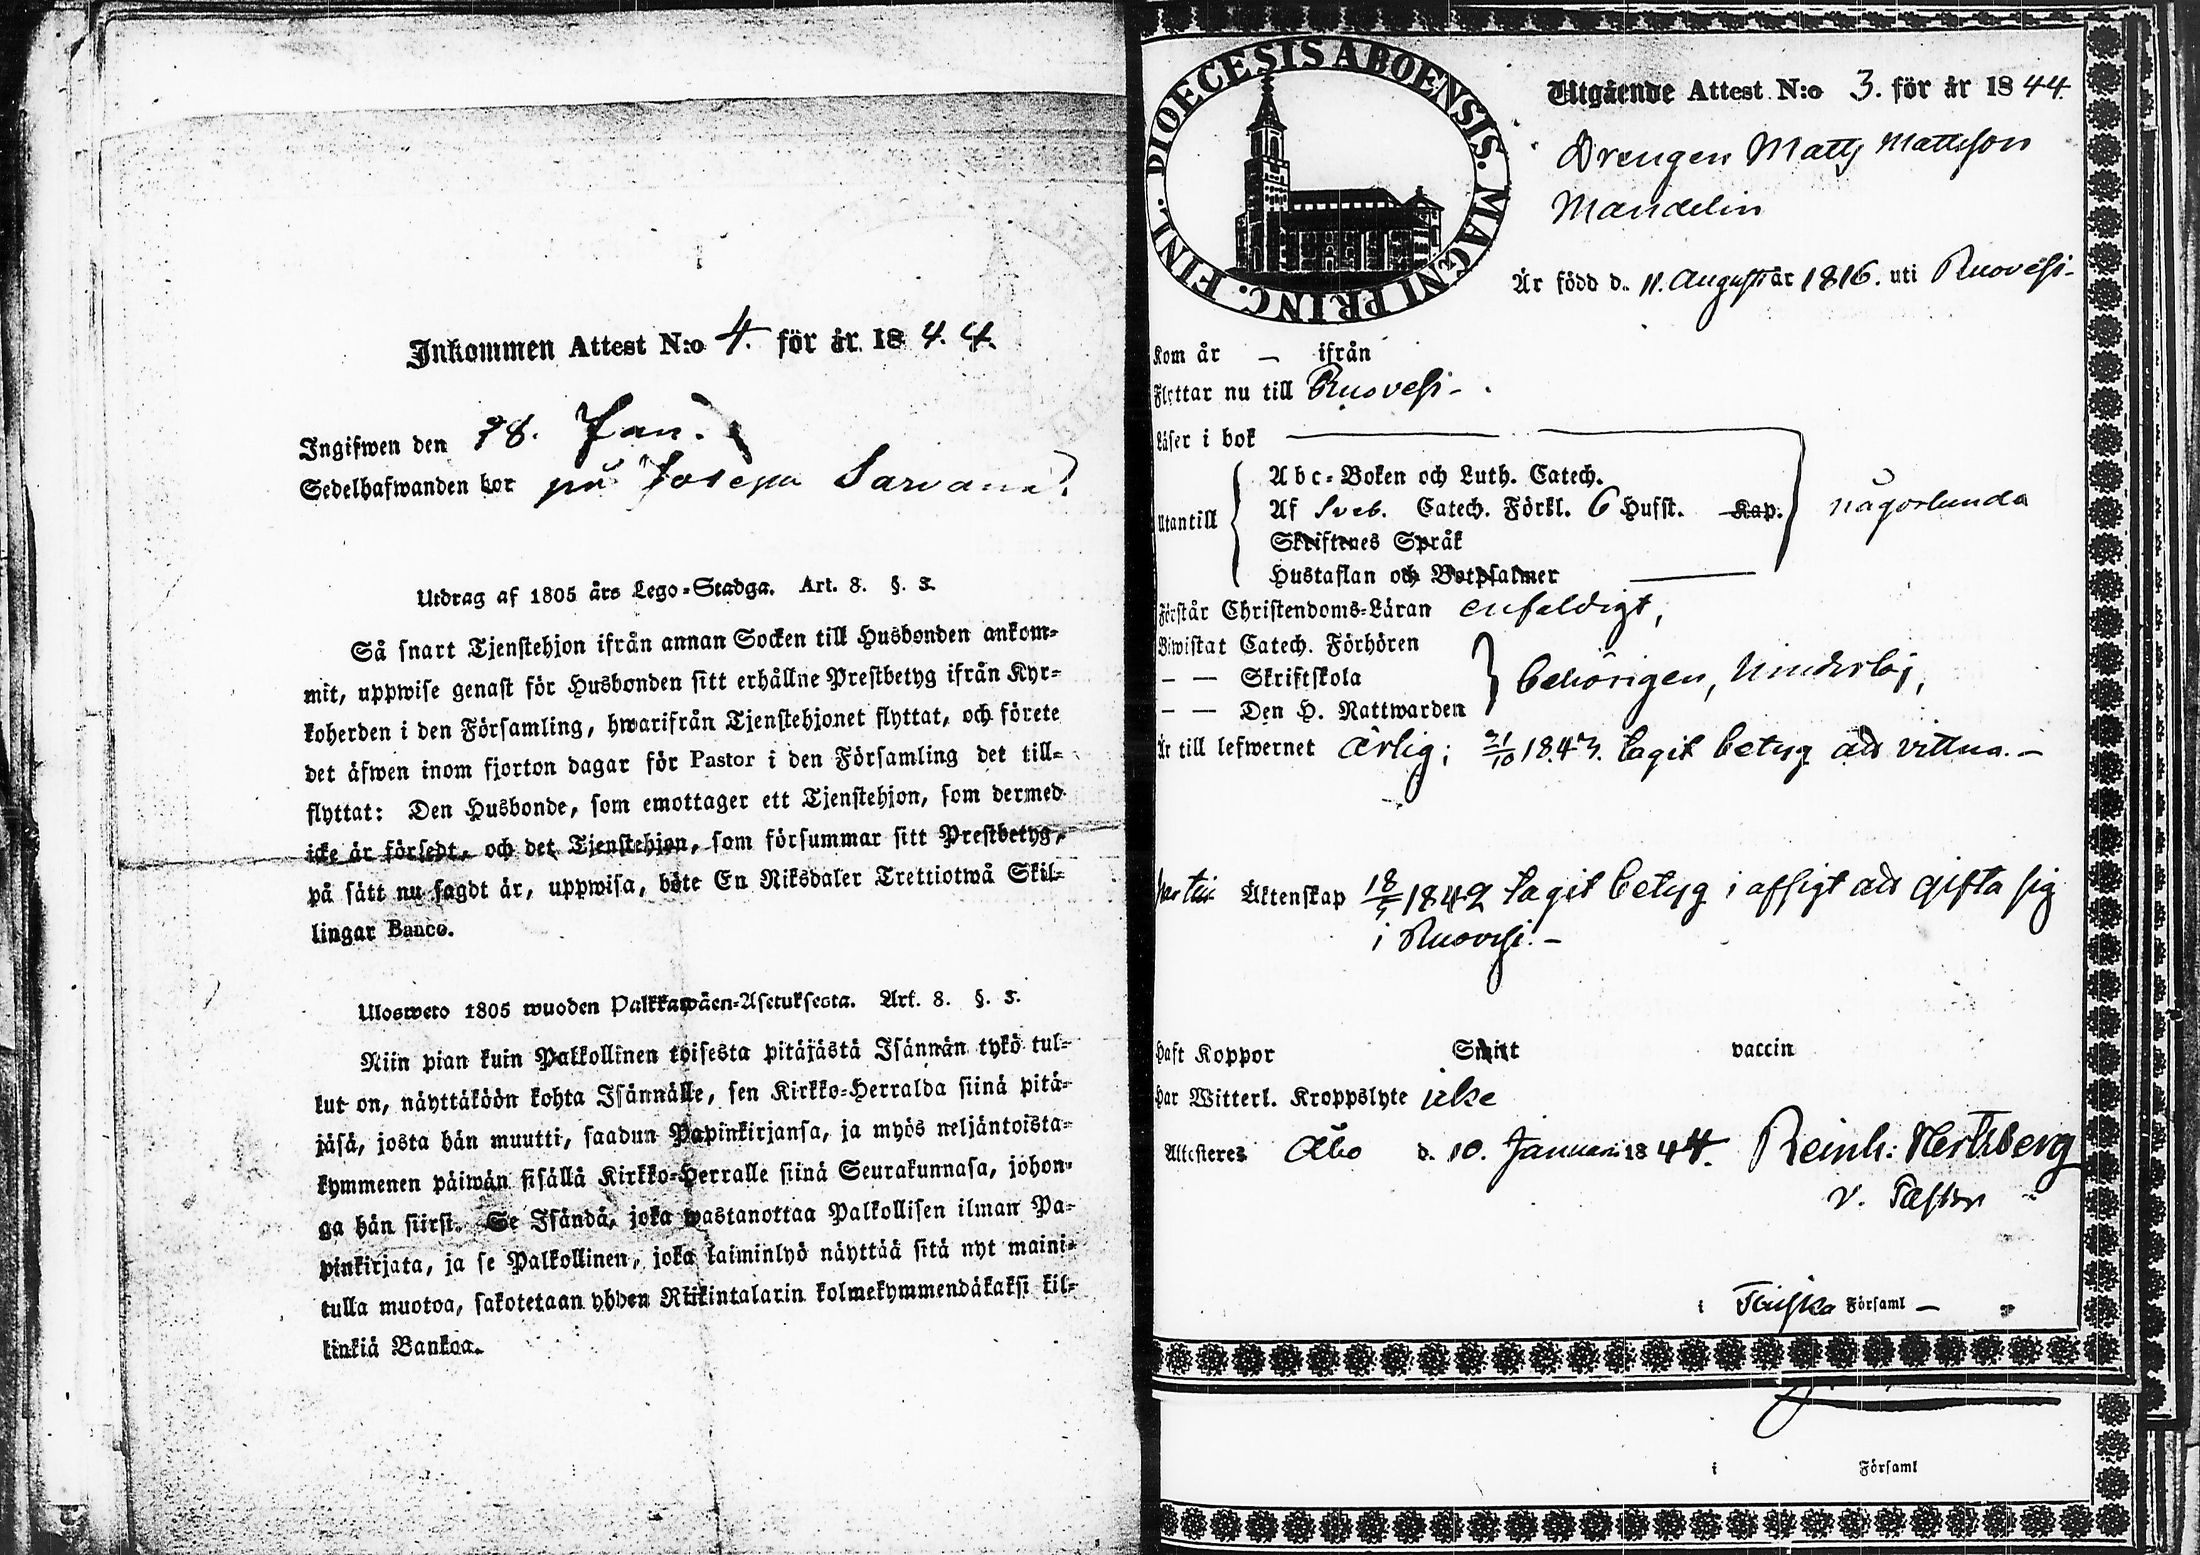 Inkommen Attest N:o 4. för år 184.4.
Ingifwen den 18. Jan.
Sedelhafwanden bor på Josepa Sarvana
Utdrag af 1805 års Lego-Stadga. Art. 8. §. 3.
Så snart Tjenstehjon ifrån annan Socken till Husbonden ankom-
mit, uppwise genast för Husbonden sitt erhållne Prestbetyg ifrån Kyr-
koherden i den Församling, hwarifrån Tjenstehjonet flyttat, och förete
det äfwen inom fjorton dagar för Pastor i den Församling det till-
flyttat: Den Husbonde, som emottager ett Tjenstehjon, som dermed
icke är försedt, och det Tjenstehjon, som försummar sitt Prestbetyg,
på sätt nu sagdt är, uppwisa, böte En Riksdaler Trettiotwå Skil-
lingar Banco.
Ulosweto 1805 wuoden Palkkawäen-Asetuksesta. Art. 8. §. 3.
Niin pian kuin Palkollinen toisesta pitäjästä Isännän tykö tul-
lut on, näyttäköön kohta Isännälle, sen Kirkko-Herralda siinä pitä-
jäsä, josta hän muutti, saadun Papinkirjansa, ja myös neljäntoista-
kymmenen päiwän sisällä Kirkko-Herralle siinä Seurakunnasa, johon-
ga hän siirsi. Se Isändä, joka wastanottaa Palkollisen ilman Pa-
pinkirjata, ja se Palkollinen, joka laiminlyö näyttää sitä nyt maini-
tulla muotoa, sakotetaan yhden Riikintalarin kolmekymmendäkaksi kil-
linkiä Bankoa.
DIOECESIS ABOENSIS. MAGNI PRINC. FINL.
Utgående Attest N:o 3. för år 1844.
Drengen Matts Mattsson
Mandelin
Är född d. 11. Augusti år 1816. uti Ruovesi-
Kom år — ifrån
Flyttar nu till Ruovesi-
Läser i bok
Abc-Boken och Luth. Catech.
Utantill Af Sveb. Catech. Förkl. 6 Hufst. Kap. någorlunda
Skriftenes Språk
Hustaflan och Botpsalmer
Förstår Christendoms-Läran enfaldigt,
Biwistat Catech. Förhören
— — Skriftskola behörigen,
— — Den H. Nattwarden
Är till lefwernet ärlig; 21/10 1843. tagit betyg att vittna. —
Äktenskap 18/5 1842 tagit betyg i afsigt att gifta sig
i Ruovesi. —
Haft Koppor Smitt vaccin
Har Witterl. Kroppslyte icke
Attesteres Åbo d. 10. Januari 1844. Reinh: Hertzberg
v. Pastor
i Församl —
i Församl